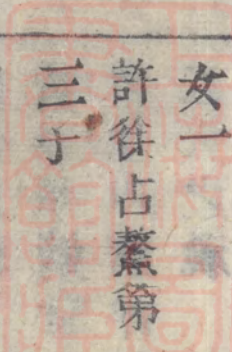 女一
許徐占鰲第
三子